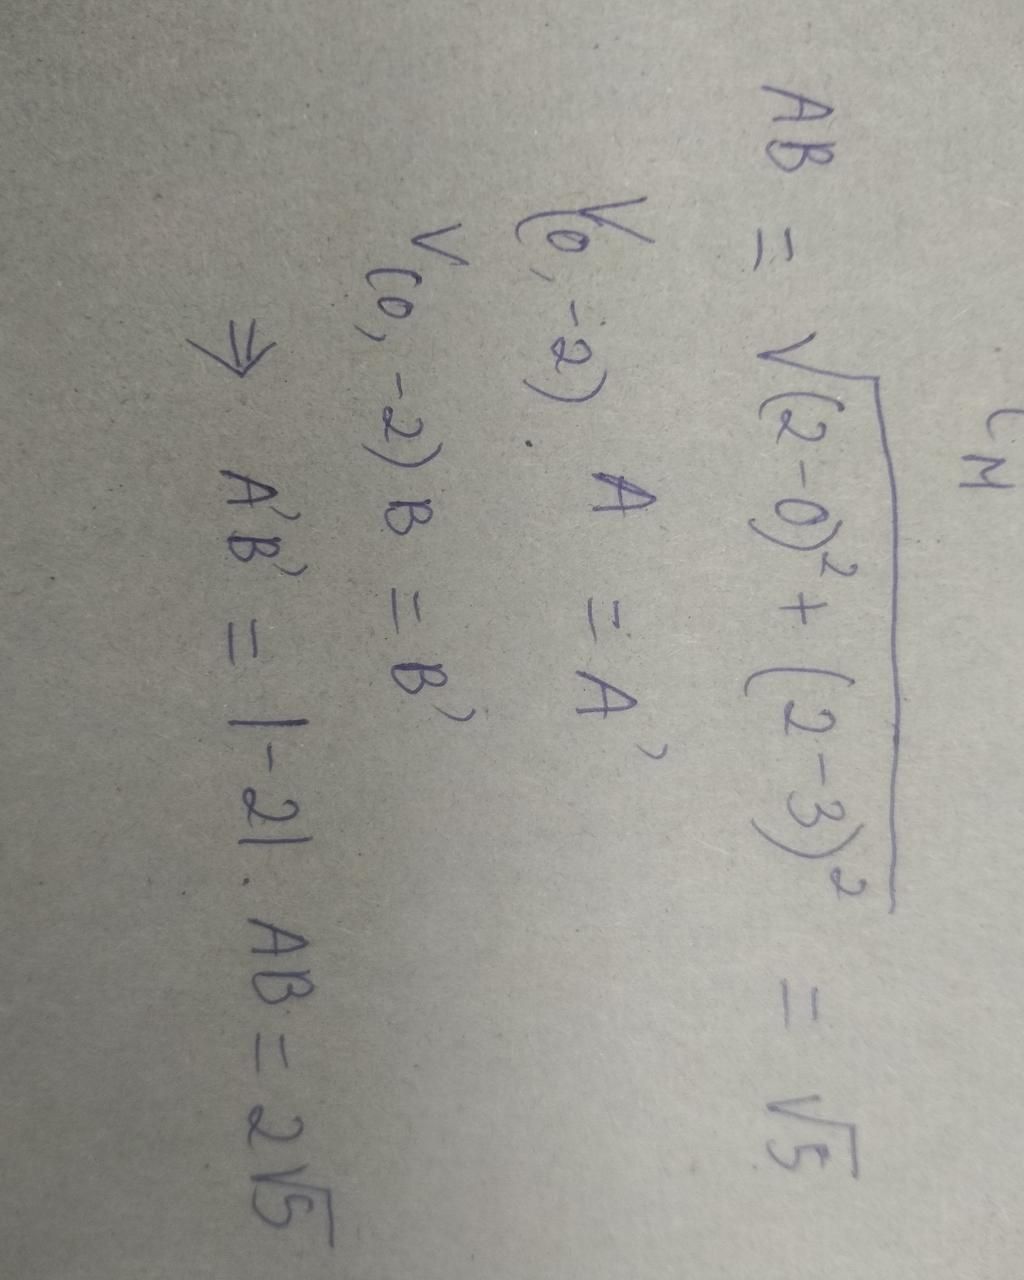 AB = √((2-0)² + (2-3)²) = √5
V(0,-2) A = A'
V(0,-2) B = B'
⇒ A'B' = |-2|. AB = 2√5